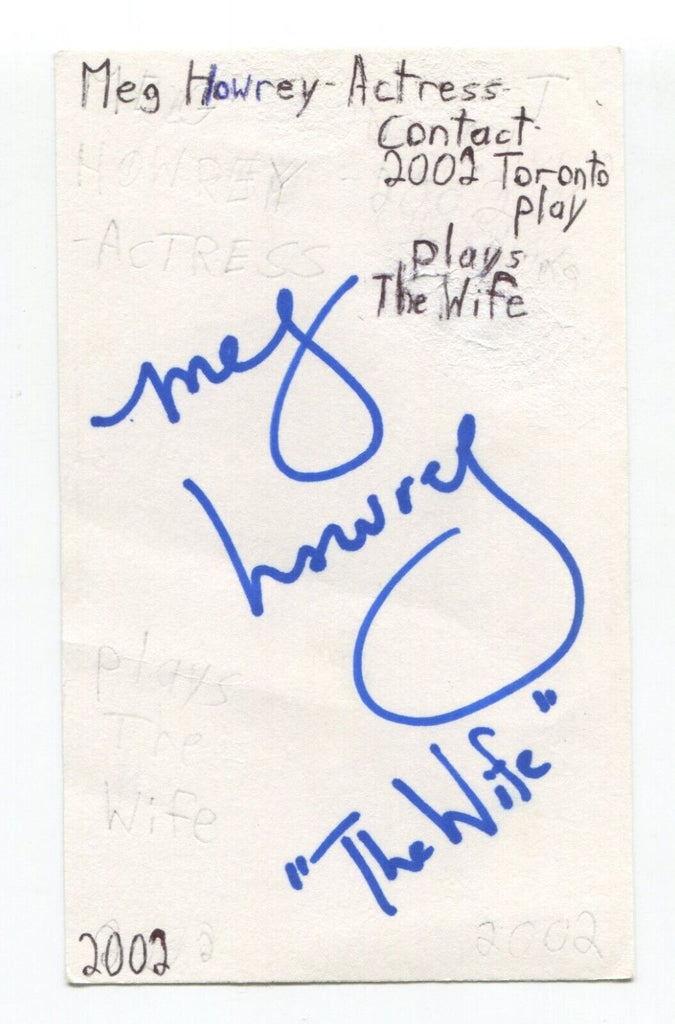 Meg Howrey - Actress -
Contact -
2002 Toronto
play
plays
The Wife
HOWREY
- ACTRESS
meg
howrey
plays
The
Wife
"The Wife"
2002
2002